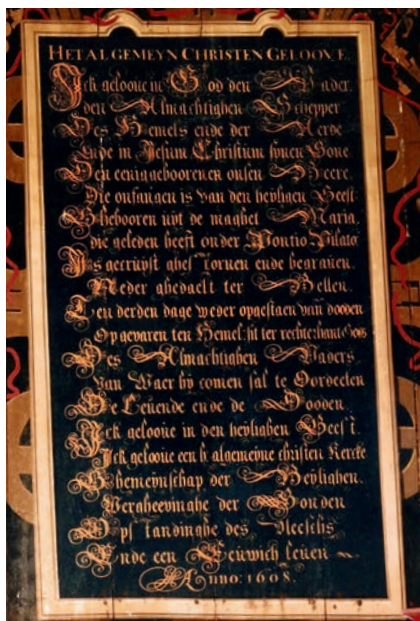 HET ALGEMEYN CHRISTEN GELOOVE.
Ick geloove in God den Vader.
den Almachtighen Schepper
Des Hemels ende der Aerde
Ende in Jesum Christum synen Sone.
Den eeniggeboorenen onsen Heere.
Die onfangen is van den heyligen Geest
Ghebooren uijt de maghet Maria.
die geleden heeft onder Pontio Pilato
Is gecruijst ghestorven ende begraven.
Neder ghedaelt ter Hellen.
Ten derden dage weder opgestaen van dooden
Opgevaren ten Hemel, sit ter rechterhant Gods
Des Almachtighen Vaders.
van Waer hij comen sal te Oordeelen
De Levende ende de Dooden.
Ick geloove in den heylighen Geest.
Ick geloove een h. algemeyne christen Kercke
Ghemeynschap der Heylighen.
Vergheevinghe der Sonden
Opstandinghe des Vleeschs
Ende een Eeuwich leven
Anno: 1608.